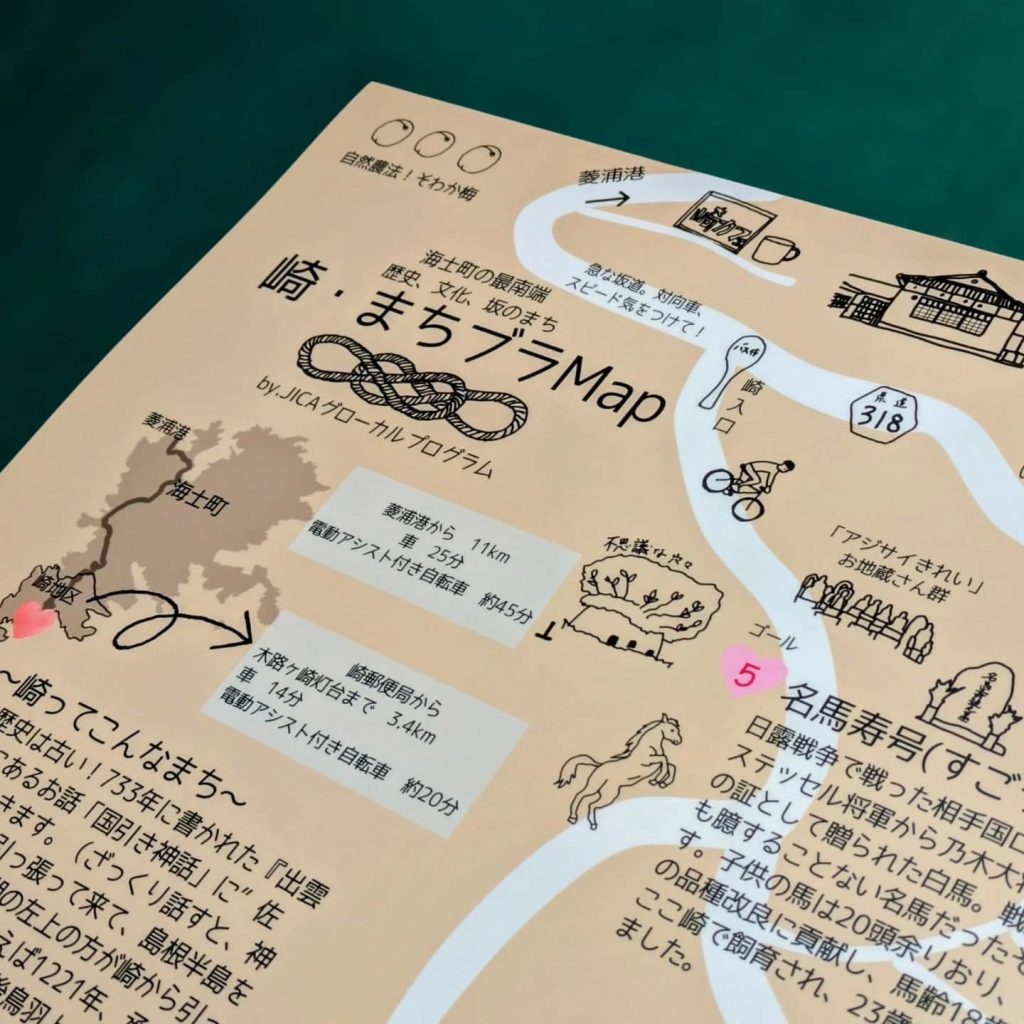 自然農法！そわか梅
菱浦港
崎カフェ
海士町の最南端
歴史、文化、坂のまち
崎・まちブラMap
by.JICAグローカルプログラム
急な坂道。対向車、
スピード気をつけて！
バス停
崎入口
県道
318
菱浦港
海士町
崎地区
菱浦港から 11km
車 25分
電動アシスト付き自転車 約45分
崎郵便局から
木路ヶ崎灯台まで 3.4km
車 14分
電動アシスト付き自転車 約20分
不思議な穴々
「アジサイきれい」
お地蔵さん群
ゴール
5
名馬寿号(すご
日露戦争で戦った相手国ロ
ステッセル将軍から乃木大将
の証として贈られた白馬。戦
も臆することない名馬だったそ
す。子供の馬は20頭余りおり、
の品種改良に貢献し、馬齢18歳
ここ崎で飼育され、23歳
ました。
～崎ってこんなまち～
歴史は古い！733年に書かれた『出雲
にあるお話「国引き神話」に"佐
きます。（ざっくり話すと、神
引っ張って来て、島根半島を
の左上の方が崎から引っ
えば1221年、承
後鳥羽上